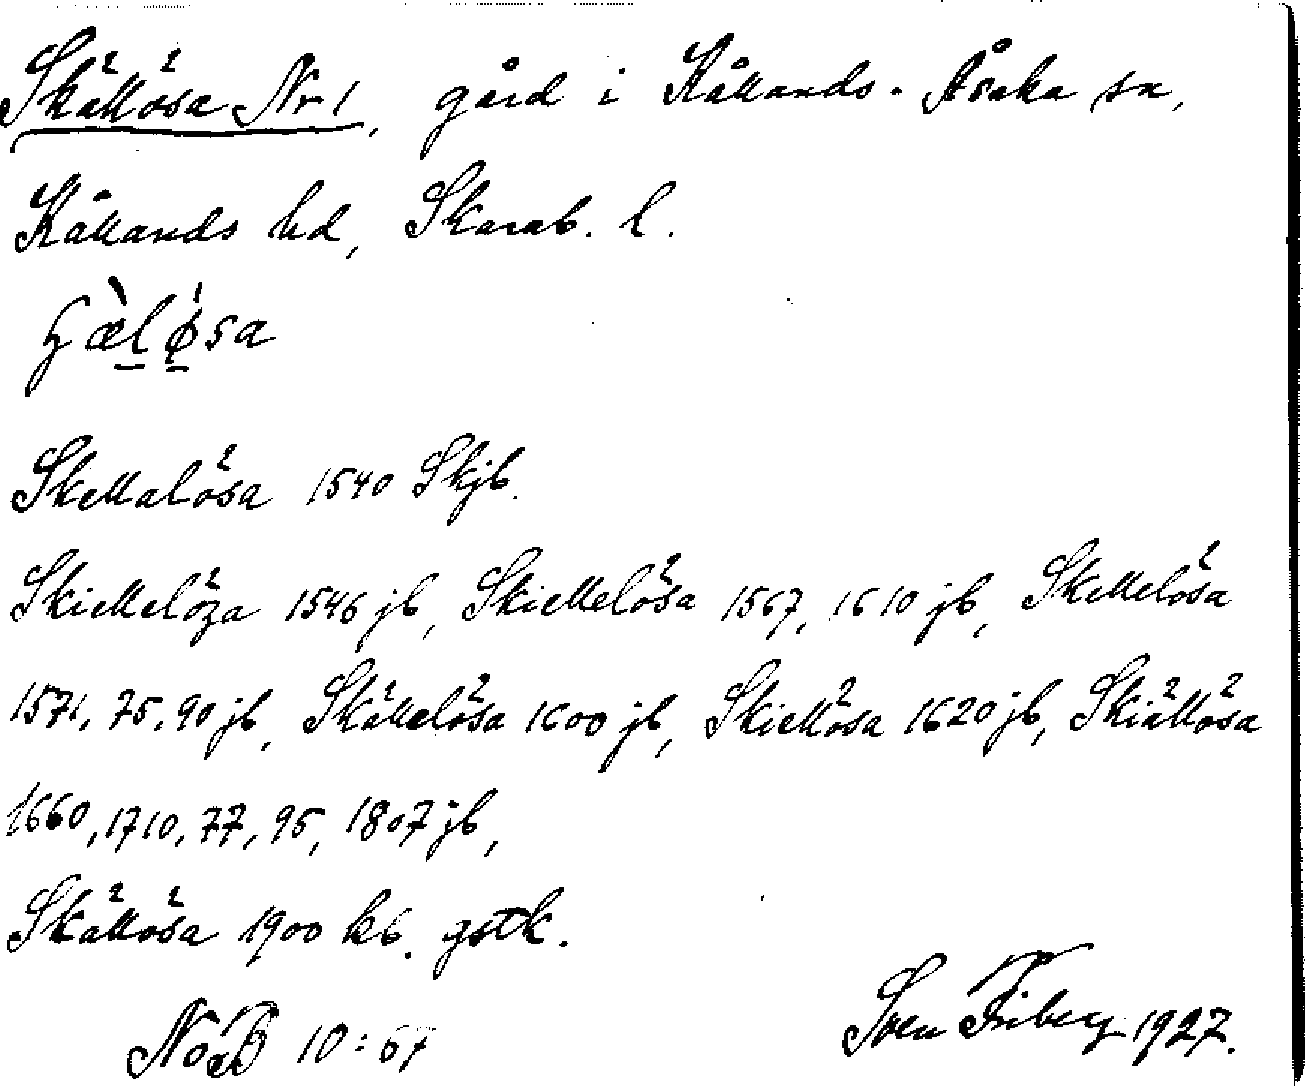 Skällösa Nr 1, gård i Kållands-Åsaka sn,
Kållands hd, Skarab. l.
ɧæ̀lø̍sa
Skellalösa 1540 Skjb.
Skiellelöza 1546 jb, Skiellelösa 1567, 1610 jb, Skellelösa
1571, 75, 90 jb, Skällelösa 1600 jb, Skiellösa 1620 jb, Skiällösa
1660, 1710, 77, 95, 1807 jb,
Skällösa 1900 kb. gstk.
NoB 10:67
Sven Friberg 1927.